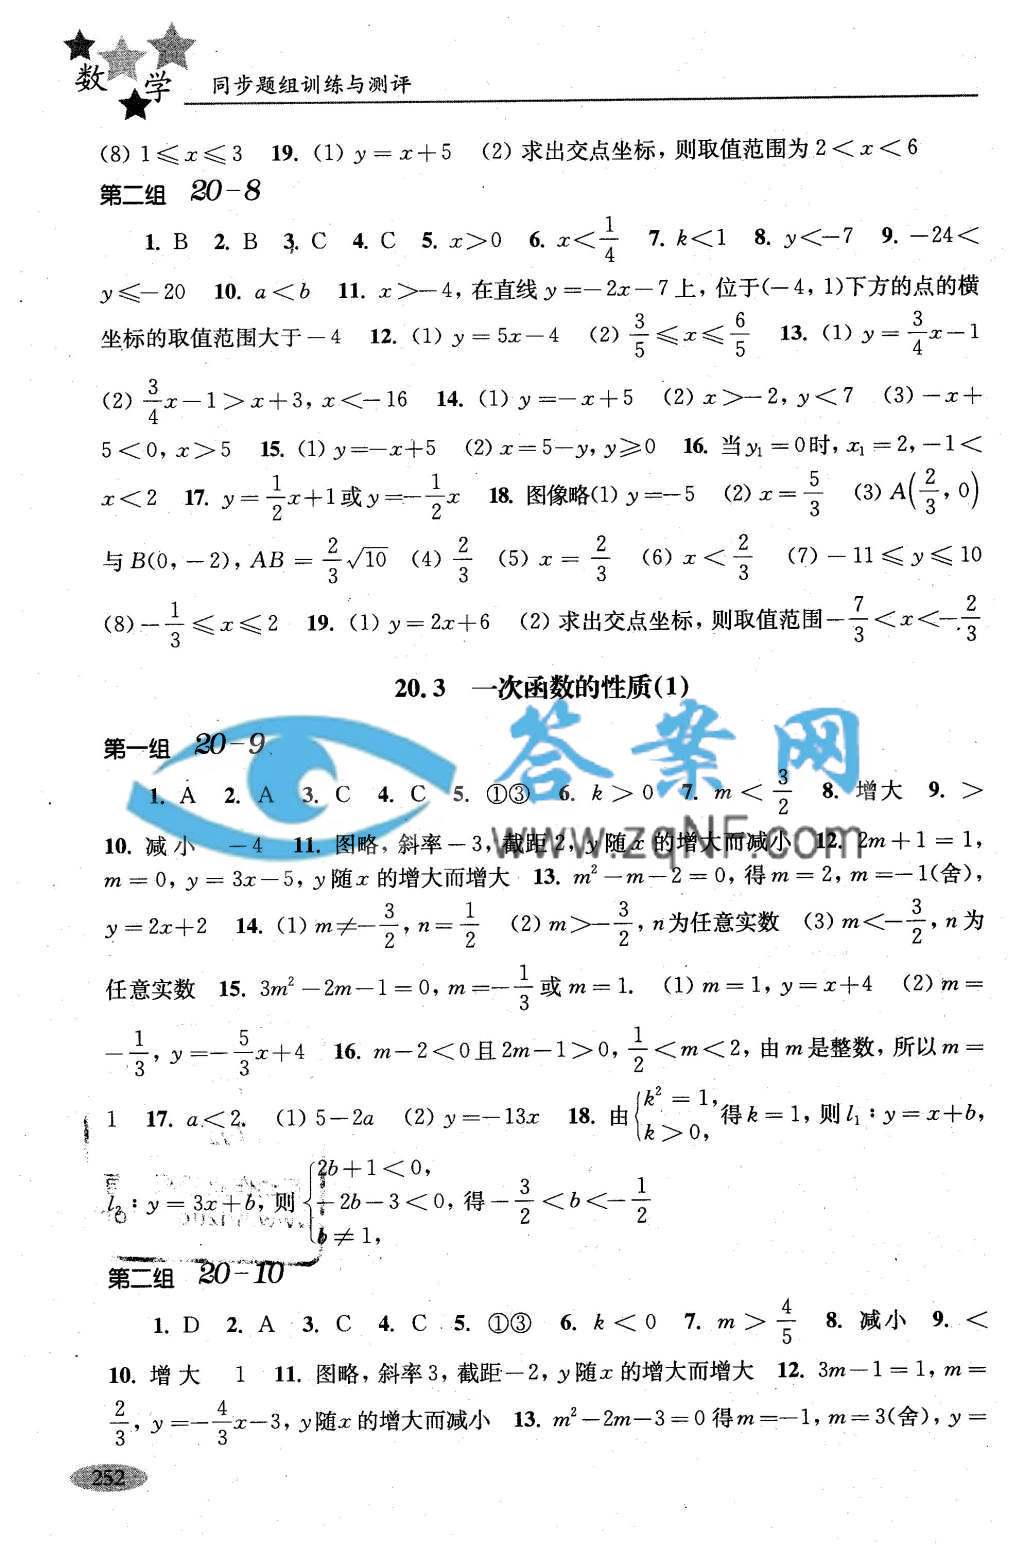 数学 同步题组训练与测评
(8) 1≤x≤3 19. (1) y=x+5 (2) 求出交点坐标，则取值范围为 2<x<6
第二组 20-8
1. B 2. B 3. C 4. C 5. x>0 6. x<1/4 7. k<1 8. y<-7 9. -24<
y≤-20 10. a<b 11. x>-4，在直线 y=-2x-7 上，位于(-4，1)下方的点的横
坐标的取值范围大于-4 12. (1) y=5x-4 (2) 3/5≤x≤6/5 13. (1) y=3/4x-1
(2) 3/4x-1>x+3，x<-16 14. (1) y=-x+5 (2) x>-2，y<7 (3) -x+
5<0，x>5 15. (1) y=-x+5 (2) x=5-y，y≥0 16. 当y₁=0时，x₁=2，-1<
x<2 17. y=1/2x+1或y=-1/2x 18. 图像略(1) y=-5 (2) x=5/3 (3) A(2/3，0)
与 B(0，-2)，AB=2/3√10 (4) 2/3 (5) x=2/3 (6) x<2/3 (7) -11≤y≤10
(8) -1/3≤x≤2 19. (1) y=2x+6 (2) 求出交点坐标，则取值范围-7/3<x<-2/3
20.3 一次函数的性质(1)
第一组 20-9
1. A 2. A 3. C 4. C 5. ①③ 6. k>0 7. m<3/2 8. 增大 9. >
10. 减小 -4 11. 图略，斜率-3，截距2，y随x的增大而减小 12. 2m+1=1，
m=0，y=3x-5，y随x的增大而增大 13. m²-m-2=0，得m=2，m=-1(舍)，
y=2x+2 14. (1) m≠-3/2，n=1/2 (2) m>-3/2，n为任意实数 (3) m<-3/2，n为
任意实数 15. 3m²-2m-1=0，m=-1/3或m=1. (1) m=1，y=x+4 (2) m=
-1/3，y=-5/3x+4 16. m-2<0且2m-1>0，1/2<m<2，由m是整数，所以m=
1 17. a<2. (1) 5-2a (2) y=-13x 18. 由{k²=1，k>0，得k=1，则l₁：y=x+b，
l₂：y=3x+b，则{2b+1<0，-2b-3<0，b≠1，得-3/2<b<-1/2
第二组 20-10
1. D 2. A 3. C 4. C 5. ①③ 6. k<0 7. m>4/5 8. 减小 9. <
10. 增大 1 11. 图略，斜率3，截距-2，y随x的增大而增大 12. 3m-1=1，m=
2/3，y=-4/3x-3，y随x的增大而减小 13. m²-2m-3=0得m=-1，m=3(舍)，y=
252
答案网
www.zqNF.com